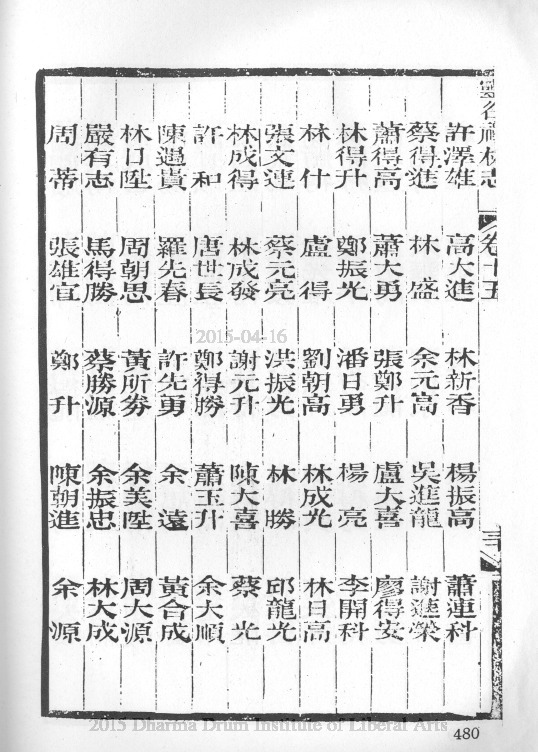 靈谷禪林志 卷十五
許澤雄 高大進 林新香 楊振高 蕭連科
蔡得進 林盛 余元高 吳進龍 謝進榮
蕭得高 蕭大勇 張鄭升 盧大喜 廖得安
林得升 鄭振光 潘日勇 楊亮 李開科
林什 盧得 劉朝高 林成光 林日高
張文連 蔡元亮 洪振光 林勝 邱龍光
林成得 林成發 謝元升 陳大喜 蔡光
許和 唐世長 鄭得勝 蕭玉升 余大順
陳遇貴 羅先春 許先勇 余遠 黃合成
林口陞 周朝思 黃所券 余美陞 周大源
嚴有志 馬得勝 蔡勝源 余振忠 林大成
周蒂 張雄宣 鄭升 陳朝進 余源
2015-04-16
2015 Dharma Drum Institute of Liberal Arts
480